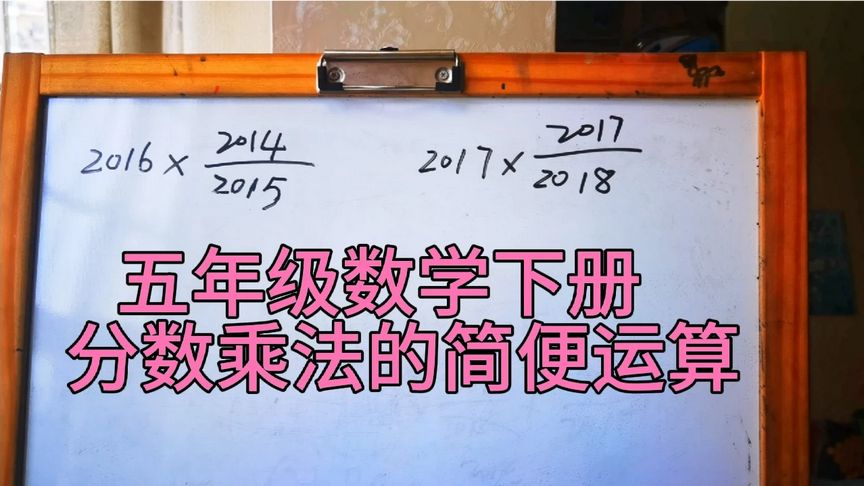 2016 × 2014/2015
2017 × 2017/2018
五年级数学下册
分数乘法的简便运算